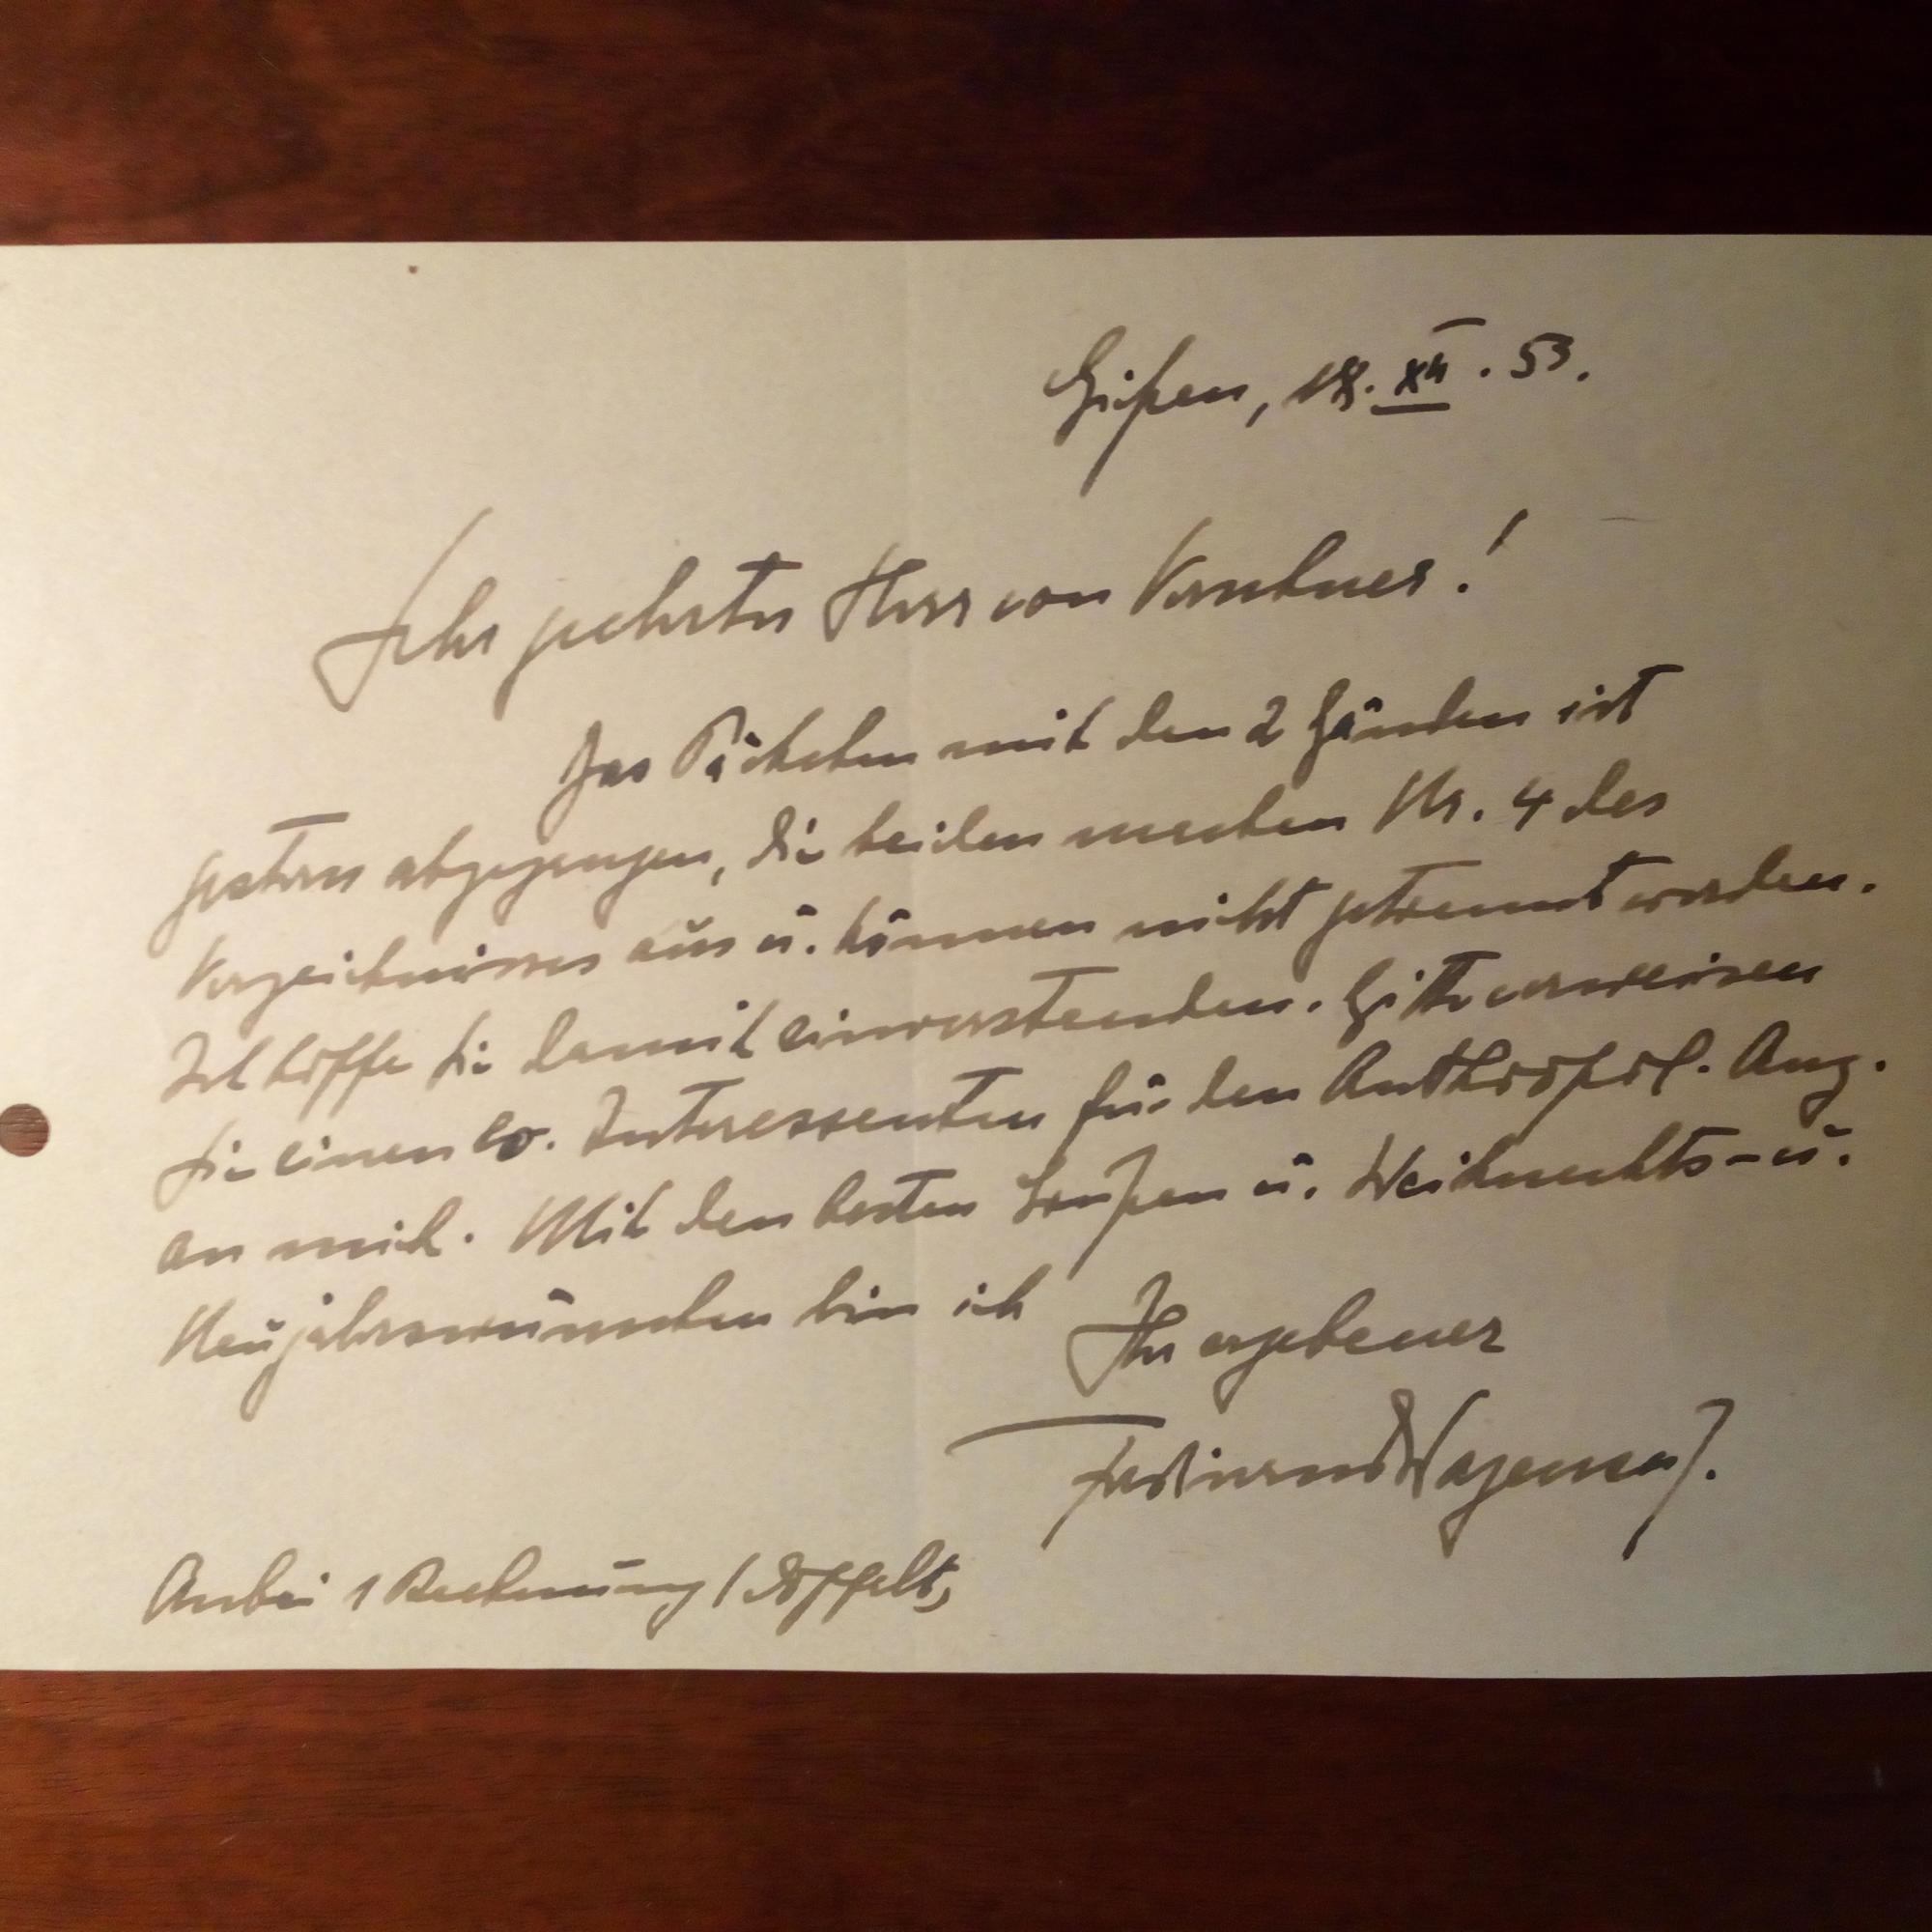 Gießen, 18. XII. 53.
Sehr geehrter Herr von
Das Päckchen mit den 2 Bänden ist
gestern abgegangen, die beiden machen Nr. 4 des
Verzeichnisses aus u. können nicht getrennt werden.
Ich hoffe Sie damit einverstanden. Bitte verweisen
Sie einen ev. Interessenten für den Anthropol. Anz.
an mich. Mit den besten Grüßen u. Weihnachts- u.
Neujahrswünschen bin ich
Ihr ergebener
Ferdinand Wagenseil.
Anbei 1 Rechnung (doppelt)